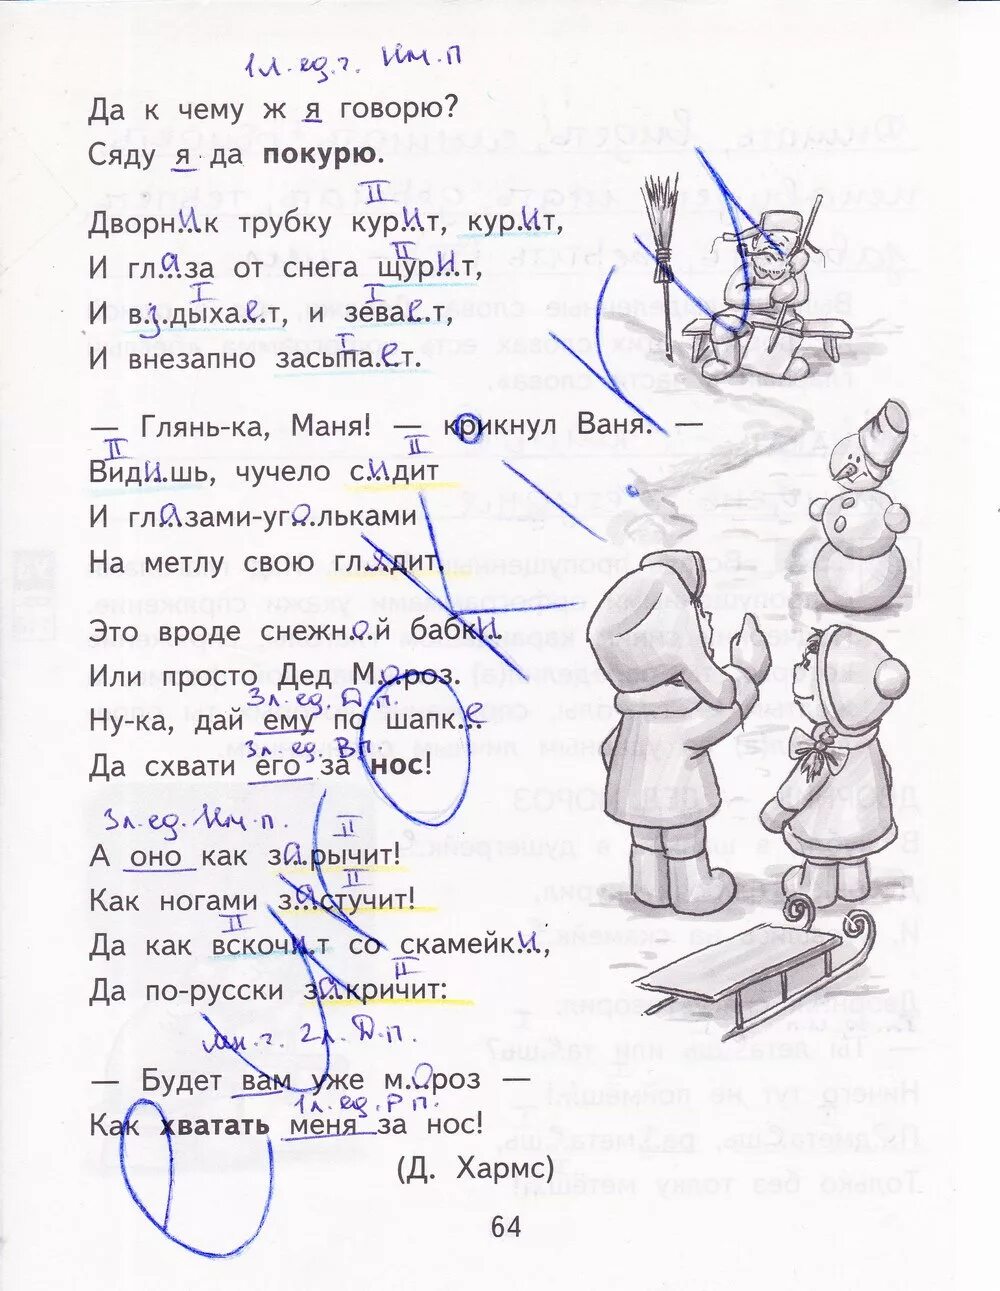 1л.ед.ч. Им.П
Да к чему ж я говорю?
Сяду я да покурю.
II
Дворн.и.к трубку кур.и.т, кур.и.т,
II
И гл.а.за от снега щур.и.т,
I I
И в.з.дыха.е.т, и зева.е.т,
I
И внезапно засыпа.е.т.
— Глянь-ка, Маня! — крикнул Ваня. —
II II
Вид.и.шь, чучело с.и.дит
И гл.а.зами-уг.о.льками
На метлу свою гл.я.дит.
Это вроде снежн.о.й бабк.и.
Или просто Дед М.о.роз.
3л.ед.Д.п.
Ну-ка, дай ему по шапк.е
3л.ед.В.
Да схвати его за нос!
3л.ед.Им.п. II
А оно как з.а.рычит!
II
Как ногами з.а.стучит!
II
Да как вскоч.и.т со скамейк.и,
II
Да по-русски з.а.кричит:
мн.ч. 2л. Д.п.
— Будет вам уже м.о.роз —
1л.ед.Р.п.
Как хватать меня за нос!
(Д. Хармс)
64